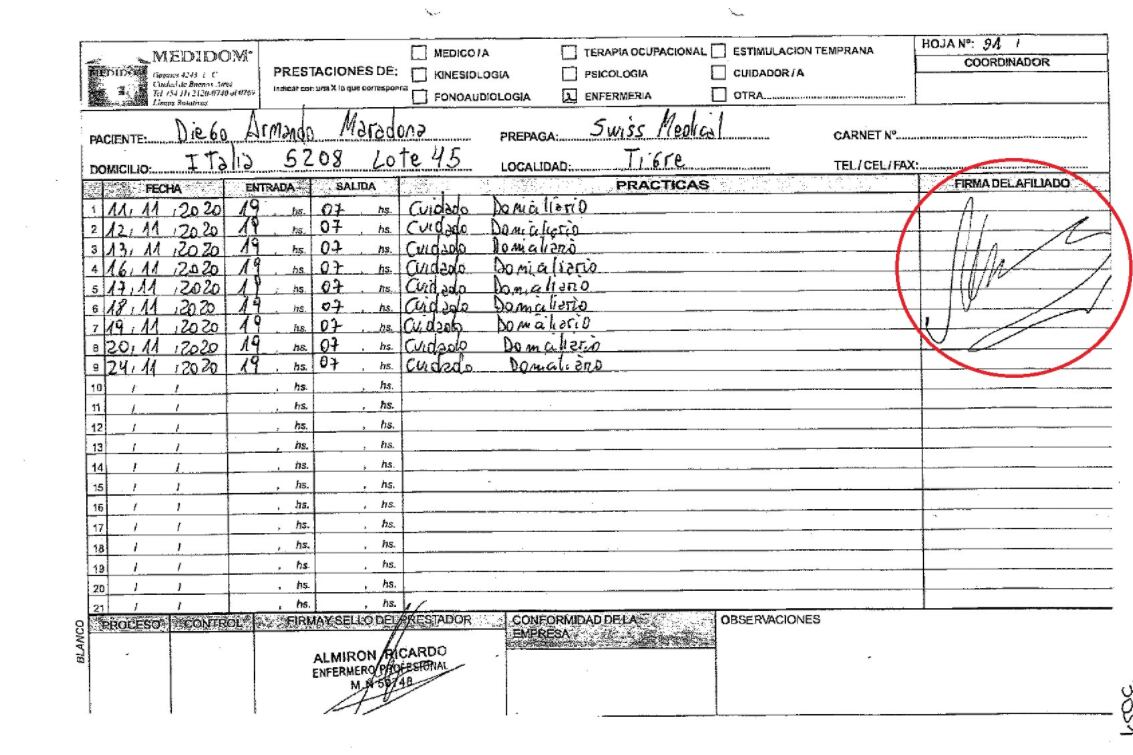 MEDIDOM®
PRESTACIONES DE:
Indicar con una X lo que corresponda
MEDICO/A
KINESIOLOGIA
FONOAUDIOLOGIA
TERAPIA OCUPACIONAL
PSICOLOGIA
X ENFERMERIA
ESTIMULACION TEMPRANA
CUIDADOR/A
OTRA
HOJA Nº:
COORDINADOR
MEDIDOM
Ciudad de Buenos Aires
Líneas Rotativas
PACIENTE: Diego Armando Maradona PREPAGA: Swiss Medical CARNET Nº
DOMICILIO: Italia 5208 Lote 45 LOCALIDAD: Tigre TEL/CEL/FAX:
FECHA ENTRADA SALIDA PRACTICAS FIRMA DEL AFILIADO
1 11/11/2020 19 hs. 07 hs. Cuidado Domiciliario
2 12/11/2020 19 hs. 07 hs. Cuidado Domiciliario
3 13/11/2020 19 hs. 07 hs. Cuidado Domiciliario
4 16/11/2020 19 hs. 07 hs. Cuidado Domiciliario
5 17/11/2020 19 hs. 07 hs. Cuidado Domiciliario
6 18/11/2020 19 hs. 07 hs. Cuidado Domiciliario
7 19/11/2020 19 hs. 07 hs. Cuidado Domiciliario
8 20/11/2020 19 hs. 07 hs. Cuidado Domiciliario
9 24/11/2020 19 hs. 07 hs. Cuidado Domiciliario
10 / / , hs. , hs.
11 / / , hs. , hs.
12 / / , hs. , hs.
13 / / , hs. , hs.
14 / / , hs. , hs.
15 / / , hs. , hs.
16 / / , hs. , hs.
17 / / , hs. , hs.
18 / / , hs. , hs.
19 / / , hs. , hs.
20 / / , hs. , hs.
21 / / , hs. , hs.
BLANCO
PROCESO CONTROL FIRMA Y SELLO DEL PRESTADOR CONFORMIDAD DE LA EMPRESA OBSERVACIONES
ALMIRON RICARDO
ENFERMERO PROFESIONAL